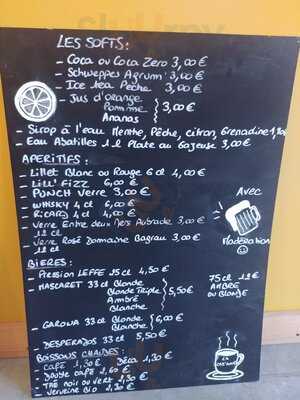 LES SOFTS :
- Coca ou Coca Zero 3,00 €
- Schweppes Agrum' 3,00 €
- Ice tea Pêche 3,00 €
- Jus d'orange
Pomme
Ananas
3,00 €
- Sirop à l'eau Menthe, Pêche, citron, Grenadine
- Eau Abatilles 1 L Plate ou Gazeuse 3,00 €
APERITIFS :
- Lillet Blanc ou Rouge 6 cl 4,00 €
- LILL' FIZZ 6,00 €
- PUNCH Verre 3,00 €
- WHISKY 4 cl 6,00 €
- RICARD 4 cl 4,00 €
- Verre Entre deux Mers 3,00 €
12 cl
- Verre Rosé Domaine 3,00 €
12 cl
Avec
Modération
BIERES :
- Pression LEFFE 25 cl 4,50 €
- MASCARET 33 cl Blonde
Blonde Triple
Ambré
Blanche
5,50 €
75 cl 12 €
AMBRÉ
OU BLONDE
- GARONA 33 cl Blonde
Blanche
6,00 €
- DESPERADOS 33 cl 5,50 €
BOISSONS CHAUDES :
- CAFÉ 1,30 € Déca 1,30 €
- Double café 2,60 €
- THÉ noir ou vert 2,30 €
- Verveine Bio 2,30 €